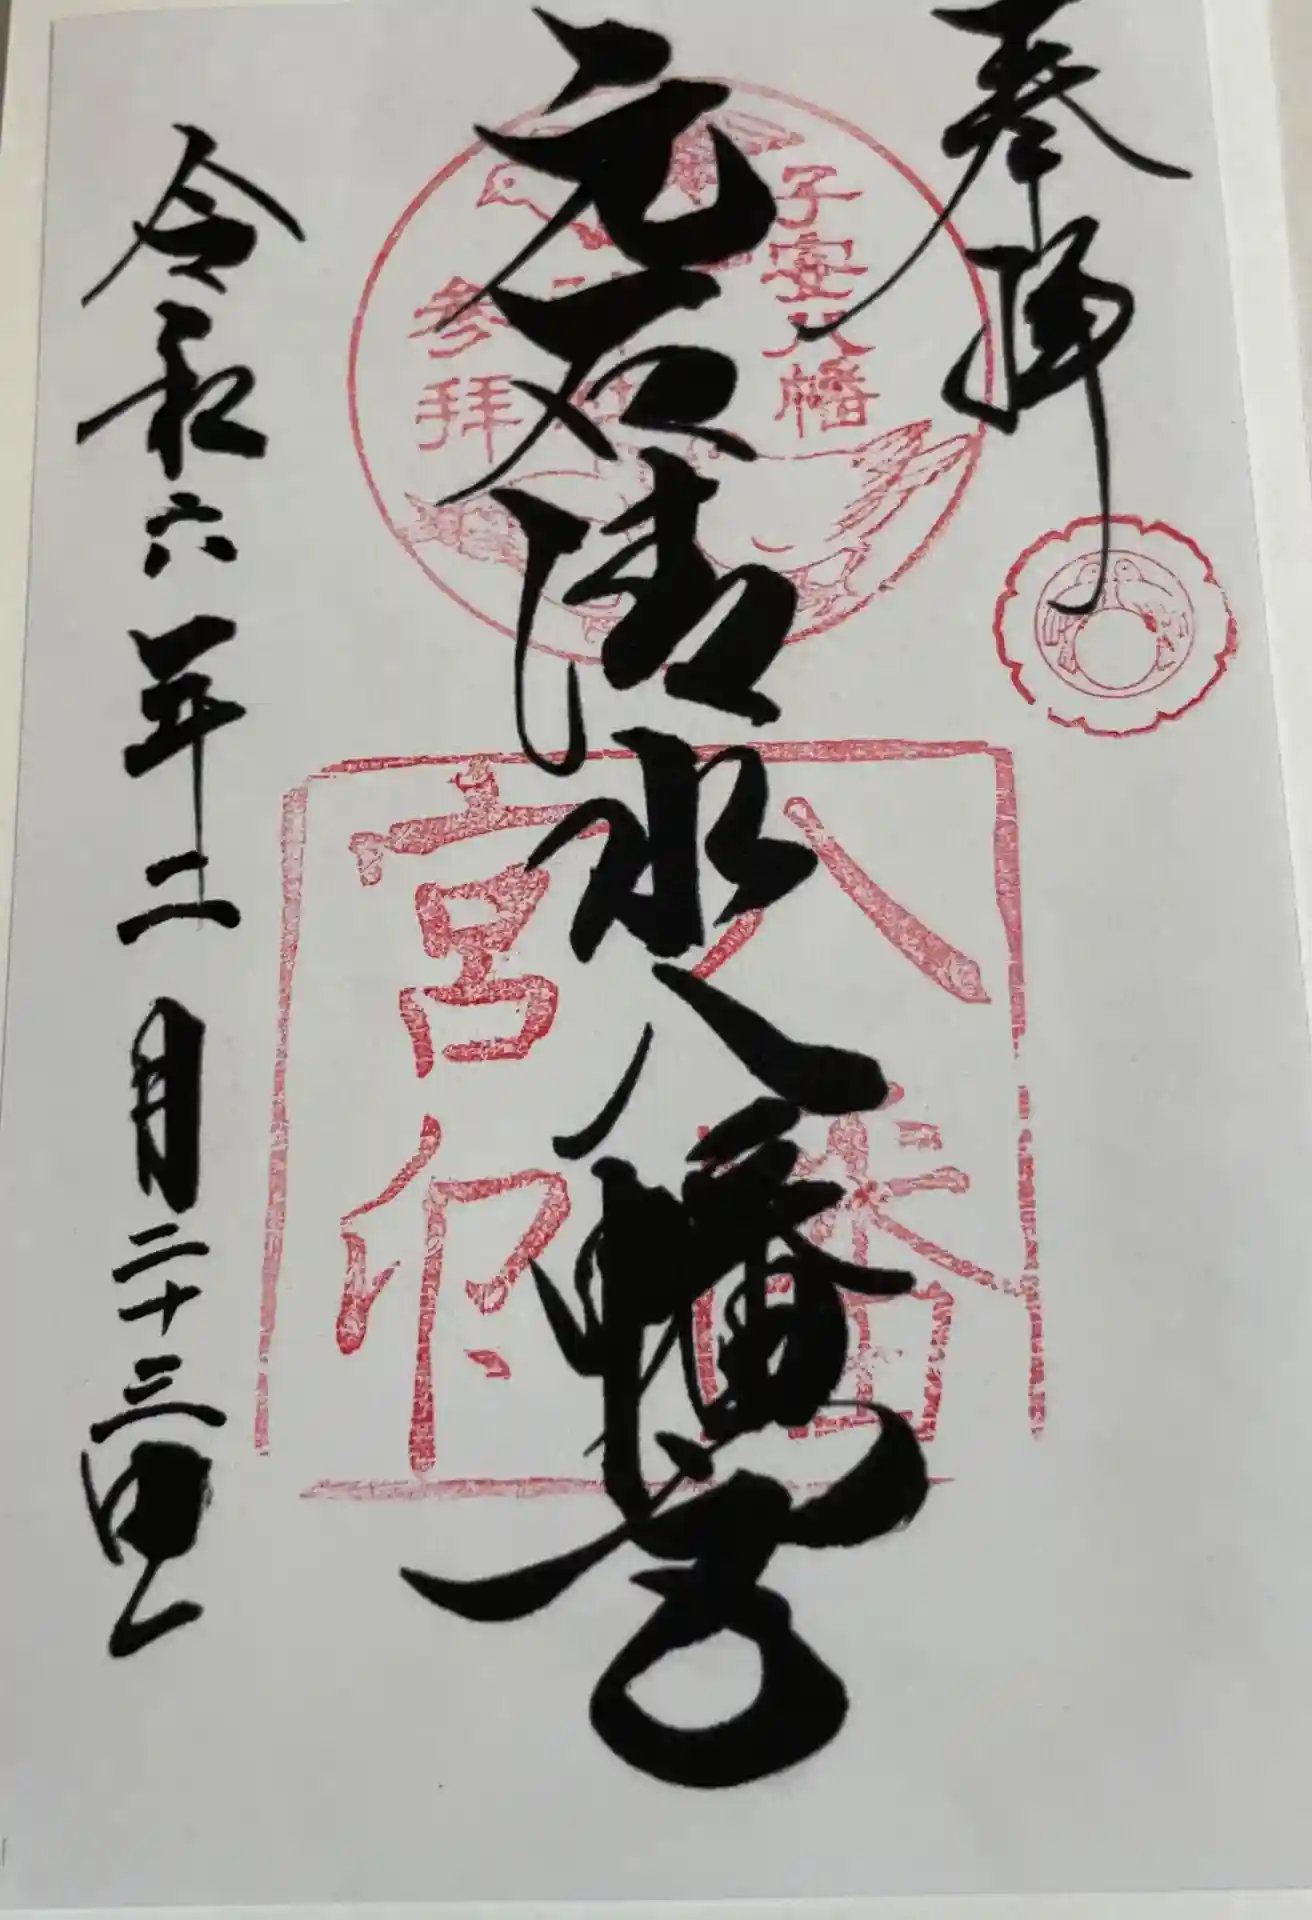 奉拝
元石清水八幡宮
令和六年二月二十三日
子安八幡
参拝
八幡
宮印